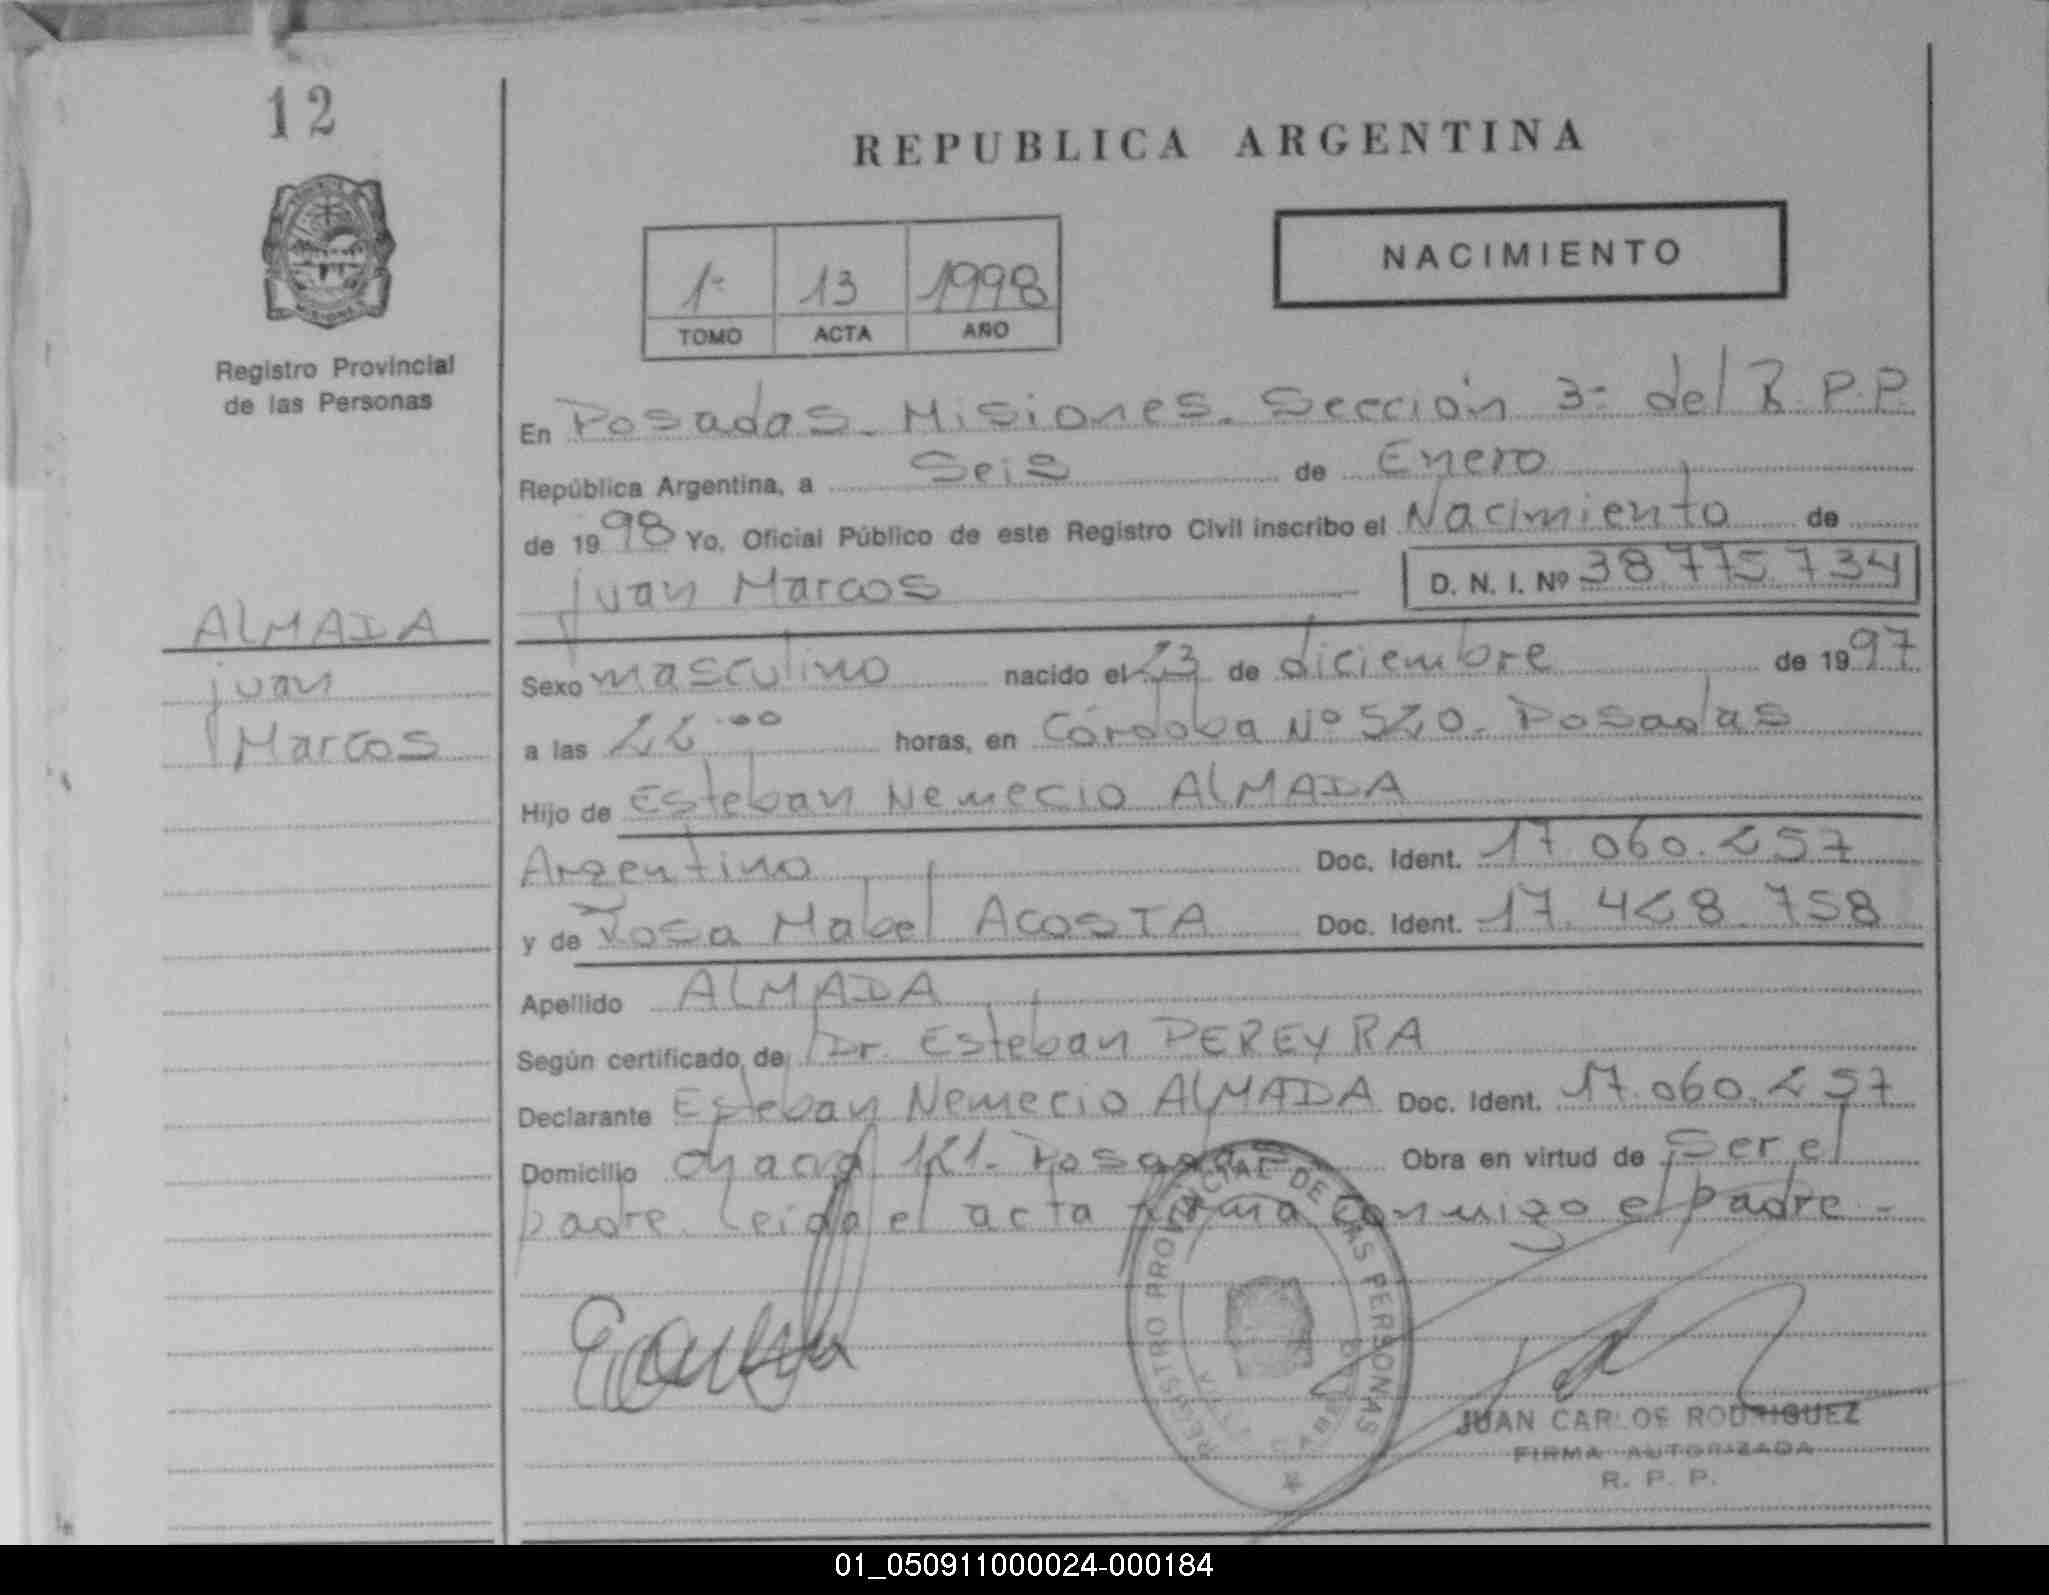 12
REPUBLICA ARGENTINA
NACIMIENTO
1º 13 1998
TOMO ACTA AÑO
Registro Provincial
de las Personas
En Posadas. Misiones. Sección 3ª del R.P.P.
República Argentina, a Seis de Enero
de 1998 Yo, Oficial Público de este Registro Civil inscribo el Nacimiento de
Juan Marcos D. N. I. Nº 38.775.734
ALMADA
Juan
Marcos
Sexo masculino nacido el 23 de diciembre de 1997
a las 22:00 horas, en Córdoba Nº 520. Posadas
Hijo de Esteban Nemecio ALMADA
Argentino Doc. Ident. 17.060.257
y de Rosa Mabel ACOSTA Doc. Ident. 17.428.758
Apellido ALMADA
Según certificado de Dr. Esteban PEREYRA
Declarante Esteban Nemecio ALMADA Doc. Ident. 17.060.257
Domicilio 121. Posadas Obra en virtud de Ser el
padre. Leida el acta firma conmigo el padre.-
REGISTRO PROVINCIAL DE LAS PERSONAS
JUAN CARLOS RODRIGUEZ
FIRMA AUTORIZADA
R. P. P.
01_050911000024-000184